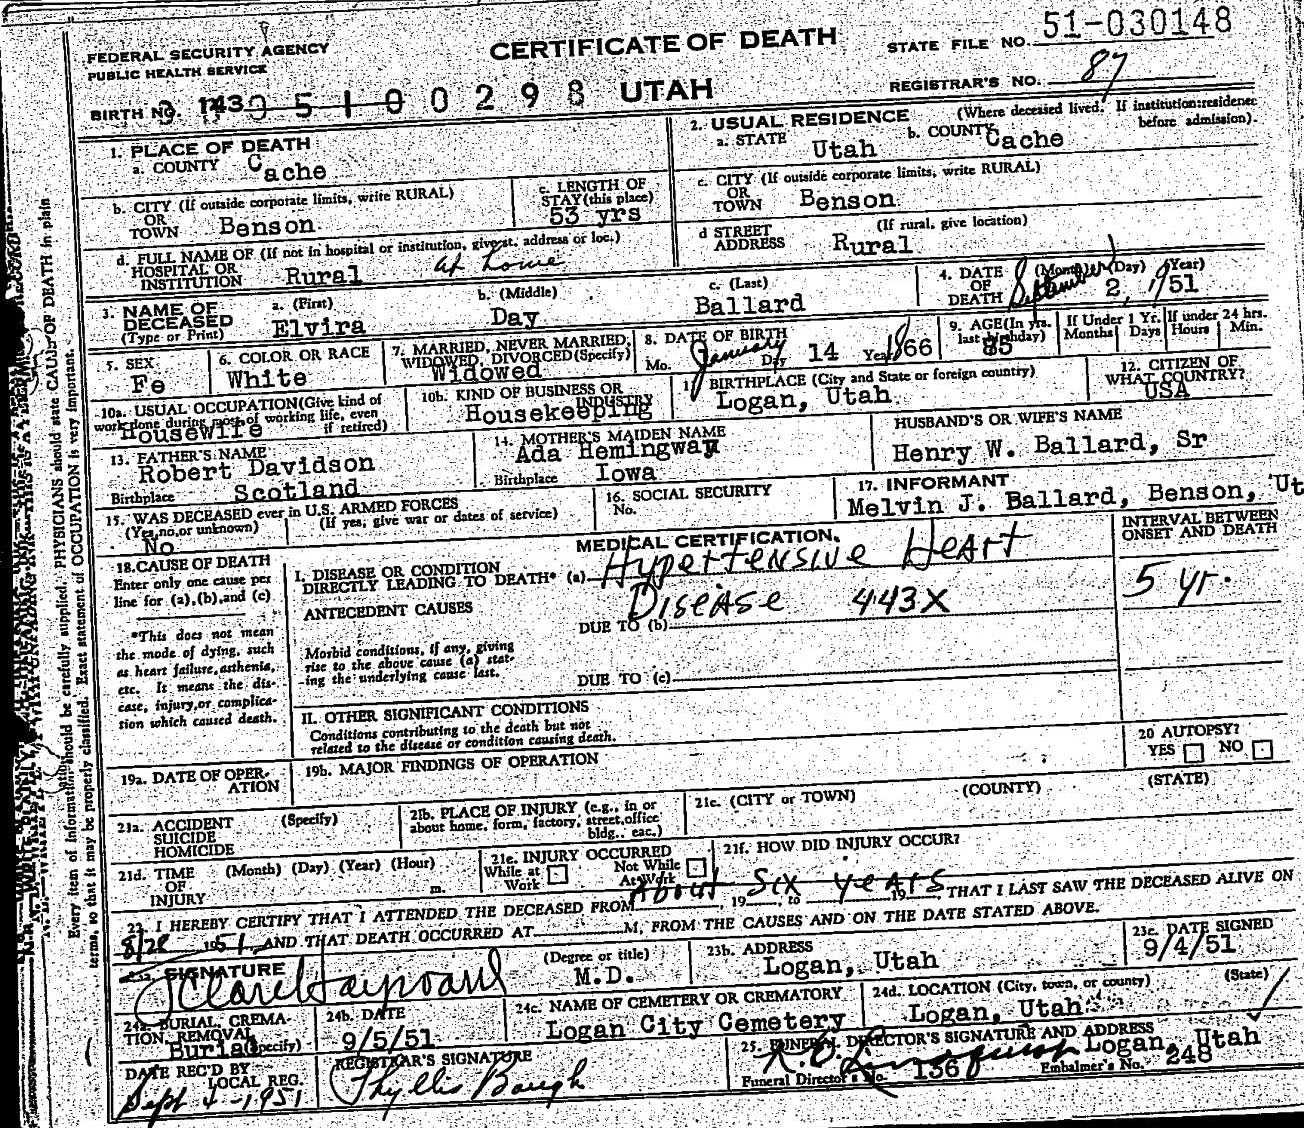 FEDERAL SECURITY AGENCY
PUBLIC HEALTH SERVICE
CERTIFICATE OF DEATH
STATE FILE NO. 51-030148
REGISTRAR'S NO. 87
BIRTH NO. 143 0 5 1 0 0 2 9 8 UTAH
1. PLACE OF DEATH
a. COUNTY Cache
2. USUAL RESIDENCE (Where deceased lived. If institution:residence before admission).
a. STATE Utah b. COUNTY Cache
b. CITY (If outside corporate limits, write RURAL)
OR
TOWN Benson
c. LENGTH OF
STAY (this place)
53 yrs
c. CITY (If outside corporate limits, write RURAL)
OR
TOWN Benson
d. FULL NAME OF (If not in hospital or institution, give st. address or loc.)
HOSPITAL OR
INSTITUTION Rural at home
d STREET
ADDRESS (If rural, give location)
Rural
3. NAME OF
DECEASED
(Type or Print)
a. (First) Elvira
b. (Middle) Day
c. (Last) Ballard
4. DATE
OF
DEATH
(Month) (Day) (Year)
September 2, 1951
5. SEX
Fe
6. COLOR OR RACE
White
7. MARRIED, NEVER MARRIED,
WIDOWED, DIVORCED(Specify)
Widowed
8. DATE OF BIRTH
Mo. January Day 14 Year 1866
9. AGE(In yrs.
last birthday)
85
If Under 1 Yr.
Months Days
If under 24 hrs.
Hours Min.
10a. USUAL OCCUPATION(Give kind of
work done during most of working life, even
if retired)
Housewife
10b. KIND OF BUSINESS OR
INDUSTRY
Housekeeping
11. BIRTHPLACE (City and State or foreign country)
Logan, Utah
12. CITIZEN OF
WHAT COUNTRY?
USA
13. FATHER'S NAME
Robert Davidson
Birthplace Scotland
14. MOTHER'S MAIDEN NAME
Ada Hemingway
Birthplace Iowa
HUSBAND'S OR WIFE'S NAME
Henry W. Ballard, Sr
15. WAS DECEASED ever in U.S. ARMED FORCES
(Yes,no,or unknown) (If yes, give war or dates of service)
No
16. SOCIAL SECURITY
No.
17. INFORMANT
Melvin J. Ballard, Benson, Ut
18. CAUSE OF DEATH
Enter only one cause per
line for (a),(b),and (c)
*This does not mean
the mode of dying, such
as heart failure, asthenia,
etc. It means the dis-
ease, injury, or complica-
tion which caused death.
MEDICAL CERTIFICATION.
INTERVAL BETWEEN
ONSET AND DEATH
I. DISEASE OR CONDITION
DIRECTLY LEADING TO DEATH* (a) Hypertensive Heart
Disease 443X
5 yr.
ANTECEDENT CAUSES
DUE TO (b)
Morbid conditions, if any, giving
rise to the above cause (a) stat-
ing the underlying cause last.
DUE TO (c)
II. OTHER SIGNIFICANT CONDITIONS
Conditions contributing to the death but not
related to the disease or condition causing death.
19a. DATE OF OPER-
ATION
19b. MAJOR FINDINGS OF OPERATION
20 AUTOPSY?
YES NO
21a. ACCIDENT (Specify)
SUICIDE
HOMICIDE
21b. PLACE OF INJURY (e.g., in or
about home, form, factory, street,office
bldg., eac.)
21c. (CITY or TOWN) (COUNTY) (STATE)
21d. TIME (Month) (Day) (Year) (Hour)
OF
INJURY m.
21e. INJURY OCCURRED
While at Work Not While At Work
21f. HOW DID INJURY OCCUR?
22. I HEREBY CERTIFY THAT I ATTENDED THE DECEASED FROM About six years, 19 , to 19 , THAT I LAST SAW THE DECEASED ALIVE ON
8/28 1951 AND THAT DEATH OCCURRED AT M, FROM THE CAUSES AND ON THE DATE STATED ABOVE.
23a. SIGNATURE (Degree or title)
M.D.
23b. ADDRESS
Logan, Utah
23c. DATE SIGNED
9/4/51
24a. BURIAL, CREMA-
TION, REMOVAL
(Specify) Burial
24b. DATE
9/5/51
24c. NAME OF CEMETERY OR CREMATORY
Logan City Cemetery
24d. LOCATION (City, town, or county) (State)
Logan, Utah
DATE REC'D BY
LOCAL REG.
Sept 4-1951
REGISTRAR'S SIGNATURE
Phyllis Baugh
25. FUNERAL DIRECTOR'S SIGNATURE AND ADDRESS
Logan, Utah
Funeral Director's No. 136 Embalmer's No. 248
Every item of information should be carefully supplied. PHYSICIANS should state CAUSE OF DEATH in plain
terms, so that it may be properly classified. Exact statement of OCCUPATION is very important.